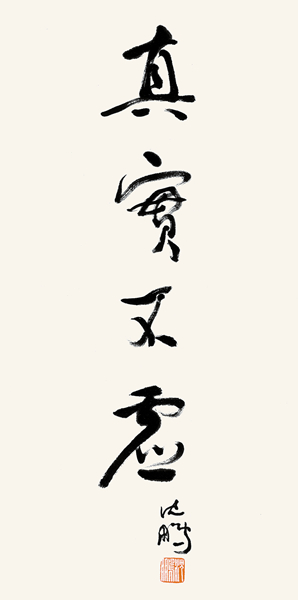 真實不虛
沈鵬